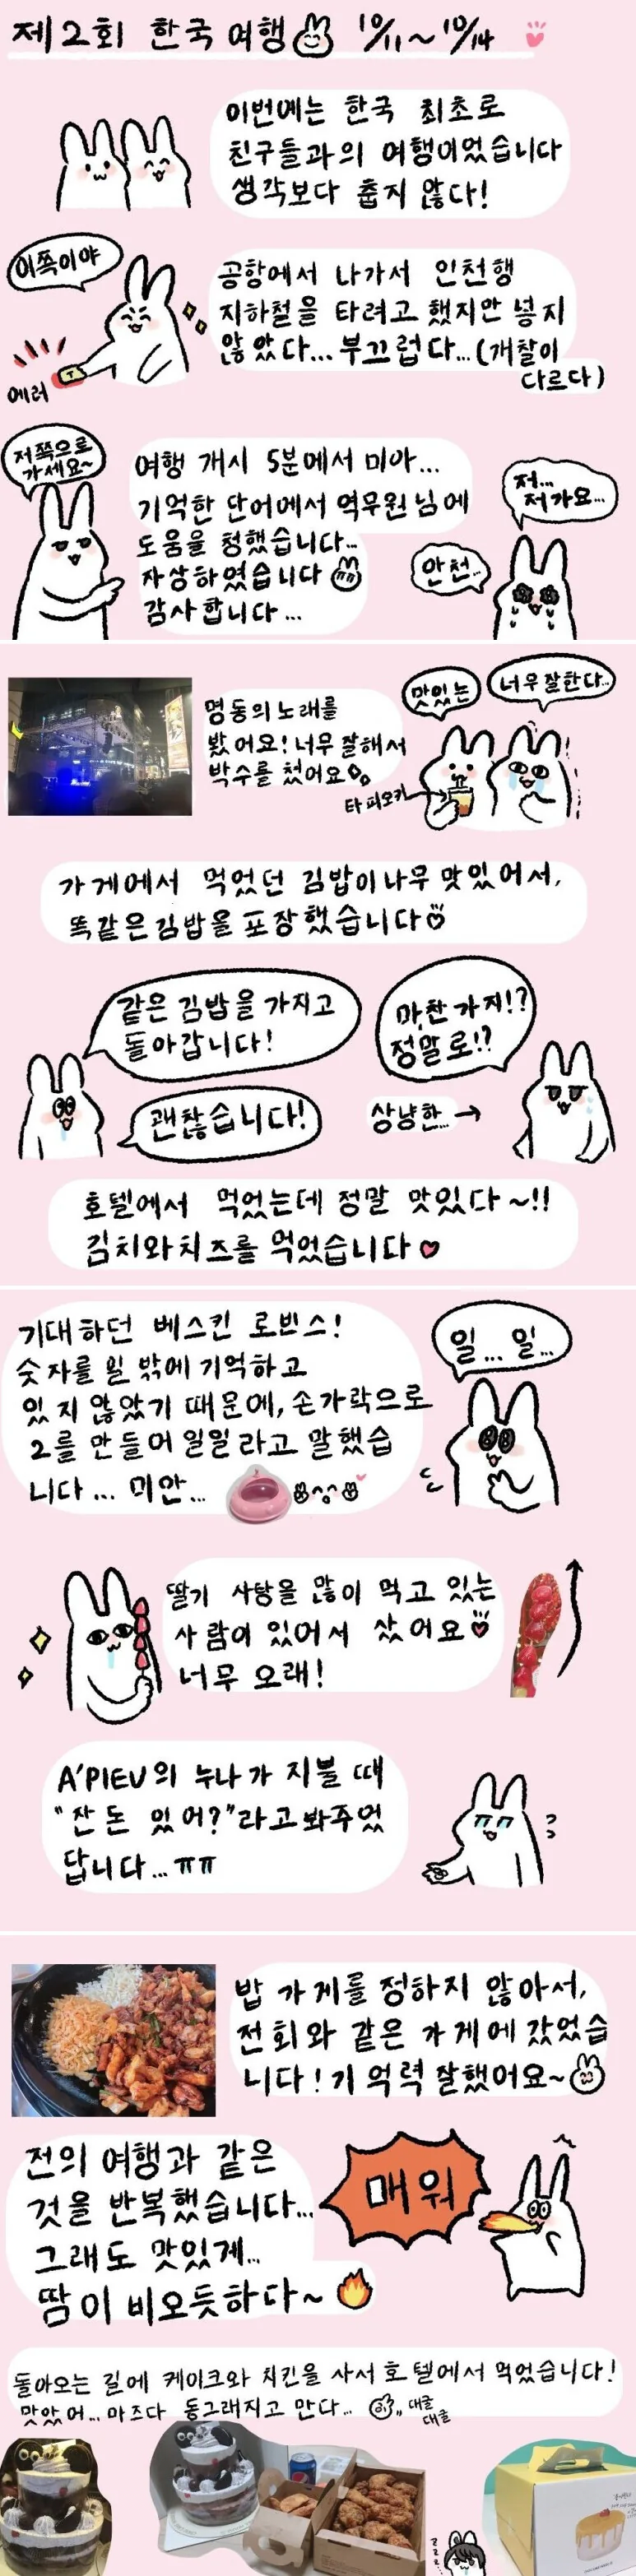 제2회 한국 여행 10/11~10/14
이번에는 한국 최초로
친구들과의 여행이었습니다
생각보다 춥지 않다!
이쪽이야
에러
공항에서 나가서 인천행
지하철을 타려고 했지만 넣지
않았다...부끄럽다...(개찰이
다르다)
저쪽으로
가세요~
여행 개시 5분에서 미아...
기억한 단어에서 역무원님에
도움을 청했습니다...
자상하였습니다
감사합니다...
저...
저가요...
안천...
명동의 노래를
봤어요!너무 잘해서
박수를 쳤어요
맛있는
너무잘한다...
타피오카
가게에서 먹었던 김밥이 나무 맛있어서,
똑같은 김밥을 포장했습니다
같은 김밥을 가지고
돌아갑니다!
괜찮습니다!
마찬가지!?
정말로!?
상냥한...→
호텔에서 먹었는데 정말 맛있다~!!
김치와 치즈를 먹었습니다
기대하던 베스킨 로빈스!
숫자를 일 밖에 기억하고
있지 않았기 때문에, 손가락으로
2를 만들어 일일라고 말했습
니다... 미안...
일...일...
딸기 사탕을 많이 먹고 있는
사람이 있어서 샀어요
너무 오래!
A'PIEU의 누나가 지불 때
"잔돈 있어?"라고봐주었
답니다...ㅠㅠ
밥 가게를 정하지 않아서,
전회와 같은 가게에 갔었습
니다!기억력 잘했어요~
전의 여행과 같은
것을 반복했습니다...
그래도 맛있게...
땀이 비오듯하다~
매워
돌아오는 길에 케이크와 치킨을 사서 호텔에서 먹었습니다!
맛았어...마즈다 동그래지고 만다...
대글
대글